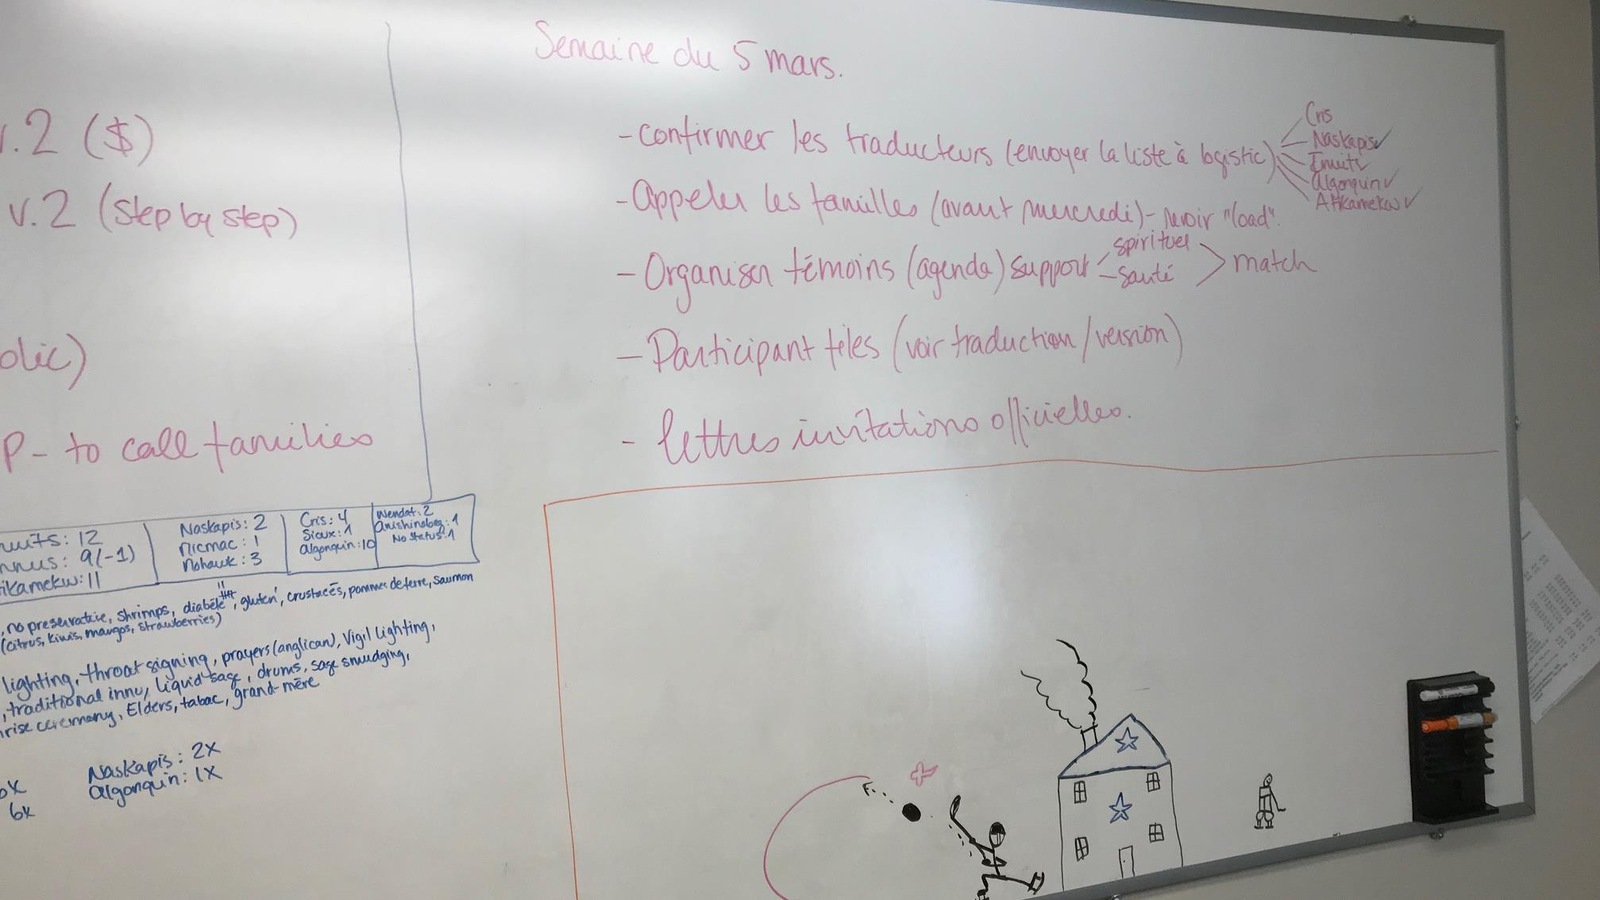 Semaine du 5 mars.
- confirmer les traducteurs (envoyer la liste à logistic)
Cris
Naskapis✓
Inuit✓
Algonquin✓
Attikamekw✓
- Appeler les familles (avant mercredi) - revoir "load".
- Organiser témoins (agenda) support
spirituel
santé
match
- Participant télés (voir traduction/version)
- lettres invitations officielles.
v.2 ($)
v.2 (step by step)
olic)
P- to call families
nuits: 12
nnus: 9(-1)
ikamekw: 11
Naskapis: 2
Micmac: 1
Mohawk: 3
Cris: 4
Sioux: 1
Algonquin: 10
Wendat: 2
Anishinabeg: 1
No status: 1
, no preservative, shrimps, diabète, gluten, crustacés, pommes de terre, saumon
(citrus, kiwis, mangos, strawberries)
lighting, throat signing, prayers (anglican), Vigil lighting,
, traditional innu, liquid sage, drums, sage smudging,
rise ceremony, Elders, tabac, grand-mère
Naskapis: 2x
Algonquin: 1x
6x